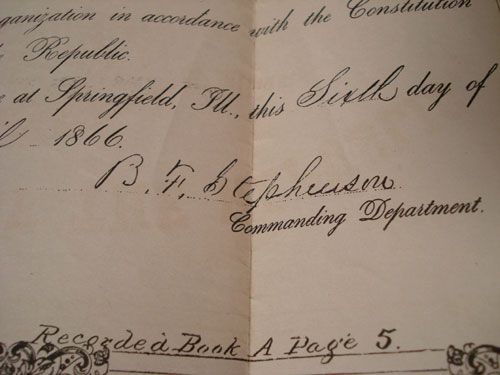 ganization in accordance with the Constitution
Republic.
at Springfield, Ill., this Sixth day of
1866.
B. F. Stephenson
Commanding Department.
Recorded Book A Page 5.